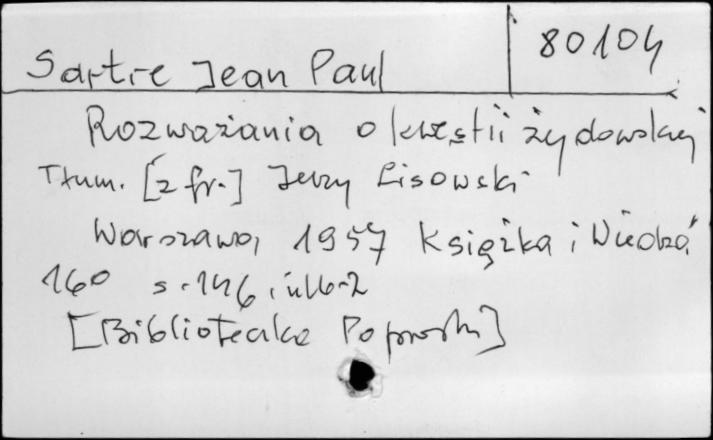 80104
Sartre Jean Paul
Rozważania o kwestii żydowskiej
Tłum. [z fr.] Jerzy Lisowski
Warszawa, 1957 Książka i Wiedza
160 s. 146, nlb. 2
[Biblioteczka Po prostu]